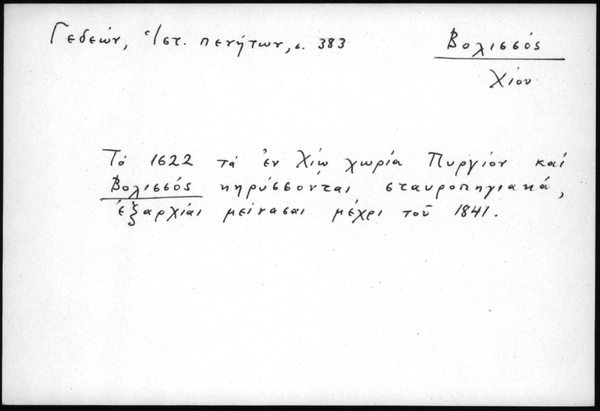 Γεδεών, Ἱστ. πενήτων, σ. 383
Βολισσός
Χίου
Τό 1622 τά ἐν Χίῳ χωρία Πυργίον καί
Βολισσός κηρύσσονται σταυροπηγιακά,
ἐξαρχίαι μείνασαι μέχρι τοῦ 1841.